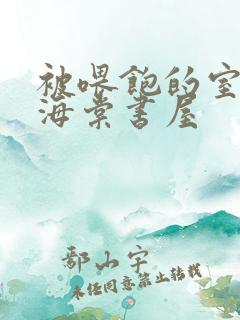 被喂饱的室
海棠书屋
鄢山宇
未经同意禁止转载